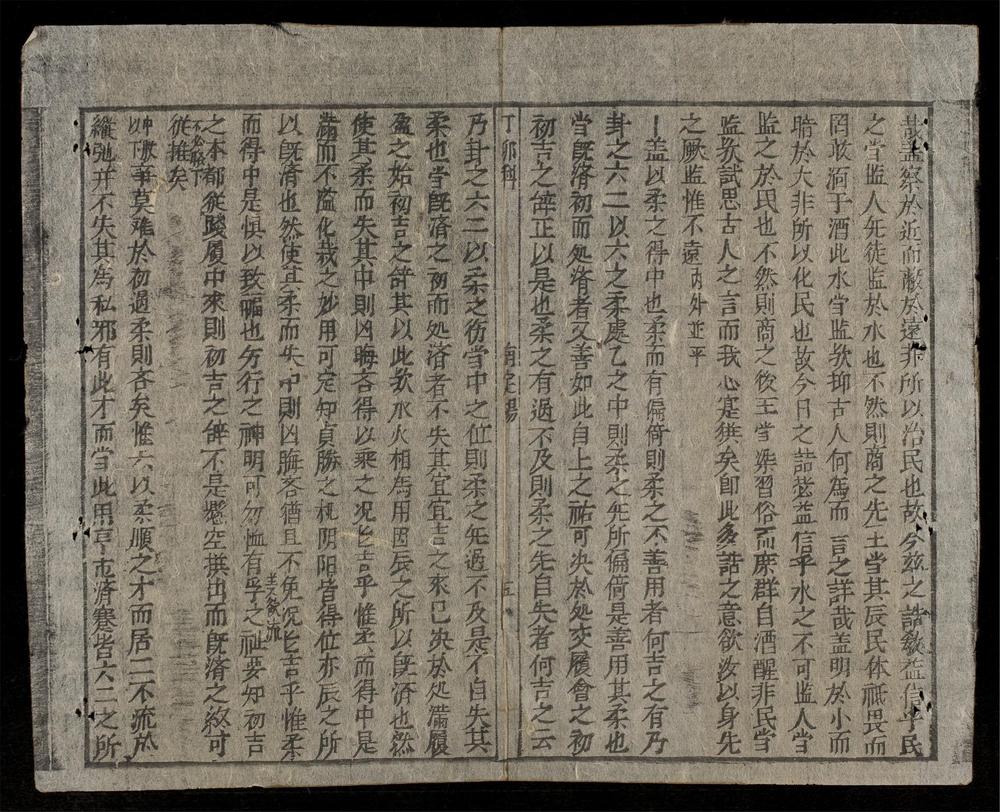 哉盖察於近而蔽於遠非所以治民也故今兹之誥敎益信乎民
之當监人旡徒监於水也不然則商之先王當其辰民体祗畏而
罔敢洏于酒此水當监欤抑古人何為而言之詳哉盖明於小而
暗於大非所以化民也故今日之誥㢤益信乎水之不可监人當
监之於民也不然則商之後王當染習俗而庶群自酒醒非民當
监欤試思古人之言而我心寔獲矣卽此多誥之意欲汝以身先
之厥监惟不遠内外並平
丨盖以柔之得中也柔而有偏倚則柔之不善用者何吉之有乃
卦之六二以六之柔處乙之中則柔之旡所偏倚是善用其柔也
當旣濟初而処濟者又善如此自上之祐可决於処交履會之初
初吉之辞正以是也柔之有過不及則柔之先自失者何吉之云
丁卯科
五
乃卦之六二以柔之徳當中之位則柔之旡過不及是不自失其
柔也當旣濟之初而処濟者不失其宜宜吉之來已决於処滿履
盈之始初吉之辞其以此欤水火相為用因辰之所以旣濟也然
使其柔而失其中則凶晦吝得以乘之况匕吉乎惟柔而得中是
滿而不溢化裁之妙用可定知貞勝之机阴阳皆得位亦辰之所
以旣濟也然使其柔而失中則凶晦吝猶且不免况匕吉乎惟柔
而得中是慎以致福也行之神明可勿恤有孚之祉要知初吉
之本都從陵履中來則初吉之辞不是憑空撰出而旣濟之欵可
從推矣
以下事莫难於初過柔則吝矣惟六以柔順之才而居二不流於
維弛并不失其為私邪有此才而當此用亨屯濟蹇皆六二之所